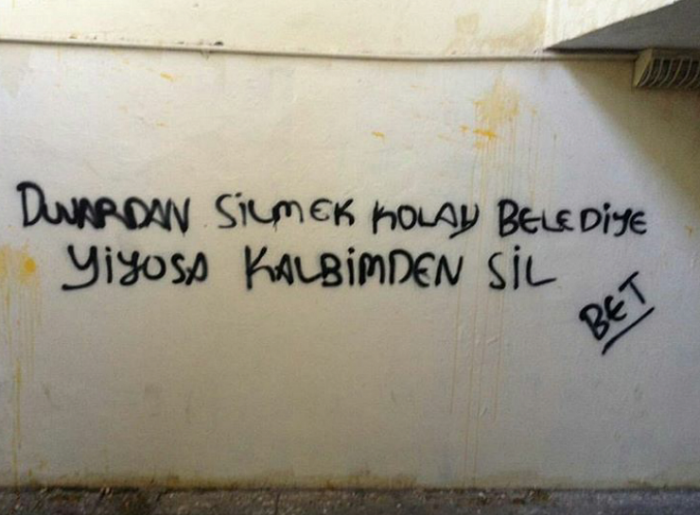 DUVARDAN SiLMEK KOLAY BELEDiYE
YiYOSA KALBiMDEN SiL
BET